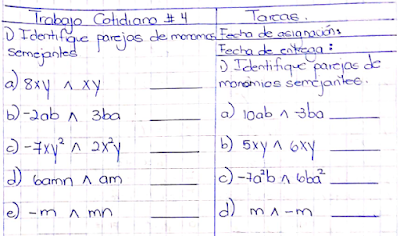 Trabajo Cotidiano # 4
1) Identifique parejas de monomios
semejantes
a) 8xy ∧ xy
b) -2ab ∧ 3ba
c) -7xy² ∧ 2x²y
d) 6amn ∧ am
e) -m ∧ mn
Tareas.
Fecha de asignación:
Fecha de entrega:
1) Identifique parejas de
monomios semejantes.
a) 10ab ∧ -3ba
b) 5xy ∧ 6xy
c) -7a²b ∧ 6ba²
d) m ∧ -m